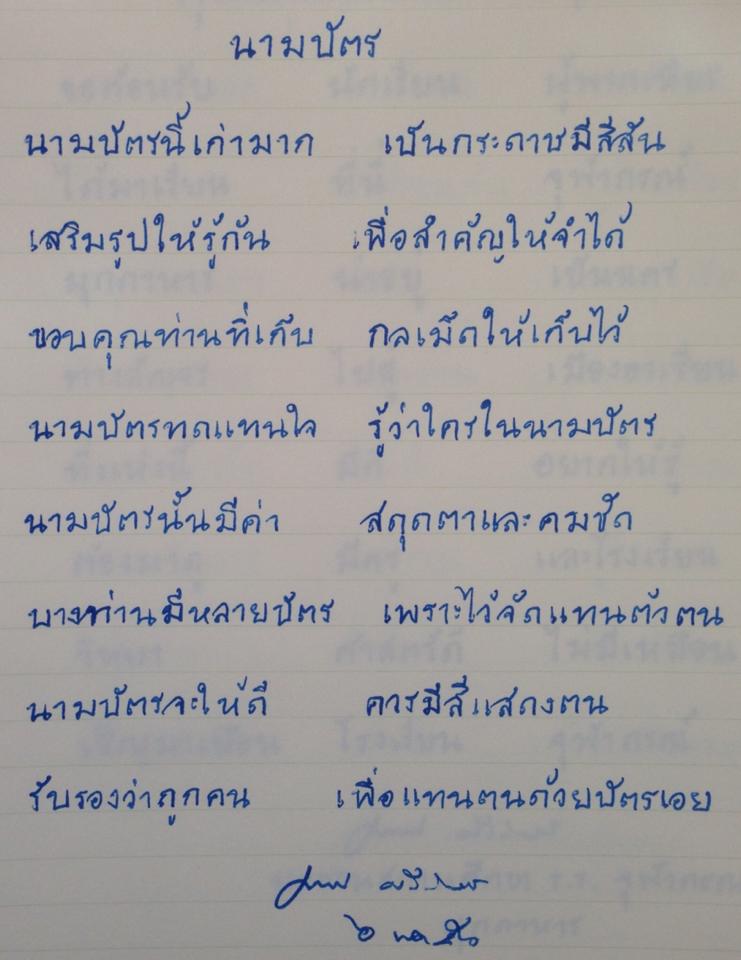 นามบัตร
นามบัตรนี้เก่ามาก เป็นกระดาษมีสีสัน
เสริมรูปให้รู้กัน เพื่อสำคัญให้จำได้
ขอบคุณท่านที่เก็บ กลเม็ดให้เก็บไว้
นามบัตรทดแทนใจ รู้ว่าใครในนามบัตร
นามบัตรนั้นมีค่า สดุดตาและคมชัด
บางท่านมีหลายบัตร เพราะไว้จัดแทนตัวตน
นามบัตรจะให้ดี ควรมีสีแสดงตน
รับรองว่าถูกคน เพื่อแทนตนด้วยบัตรเอย